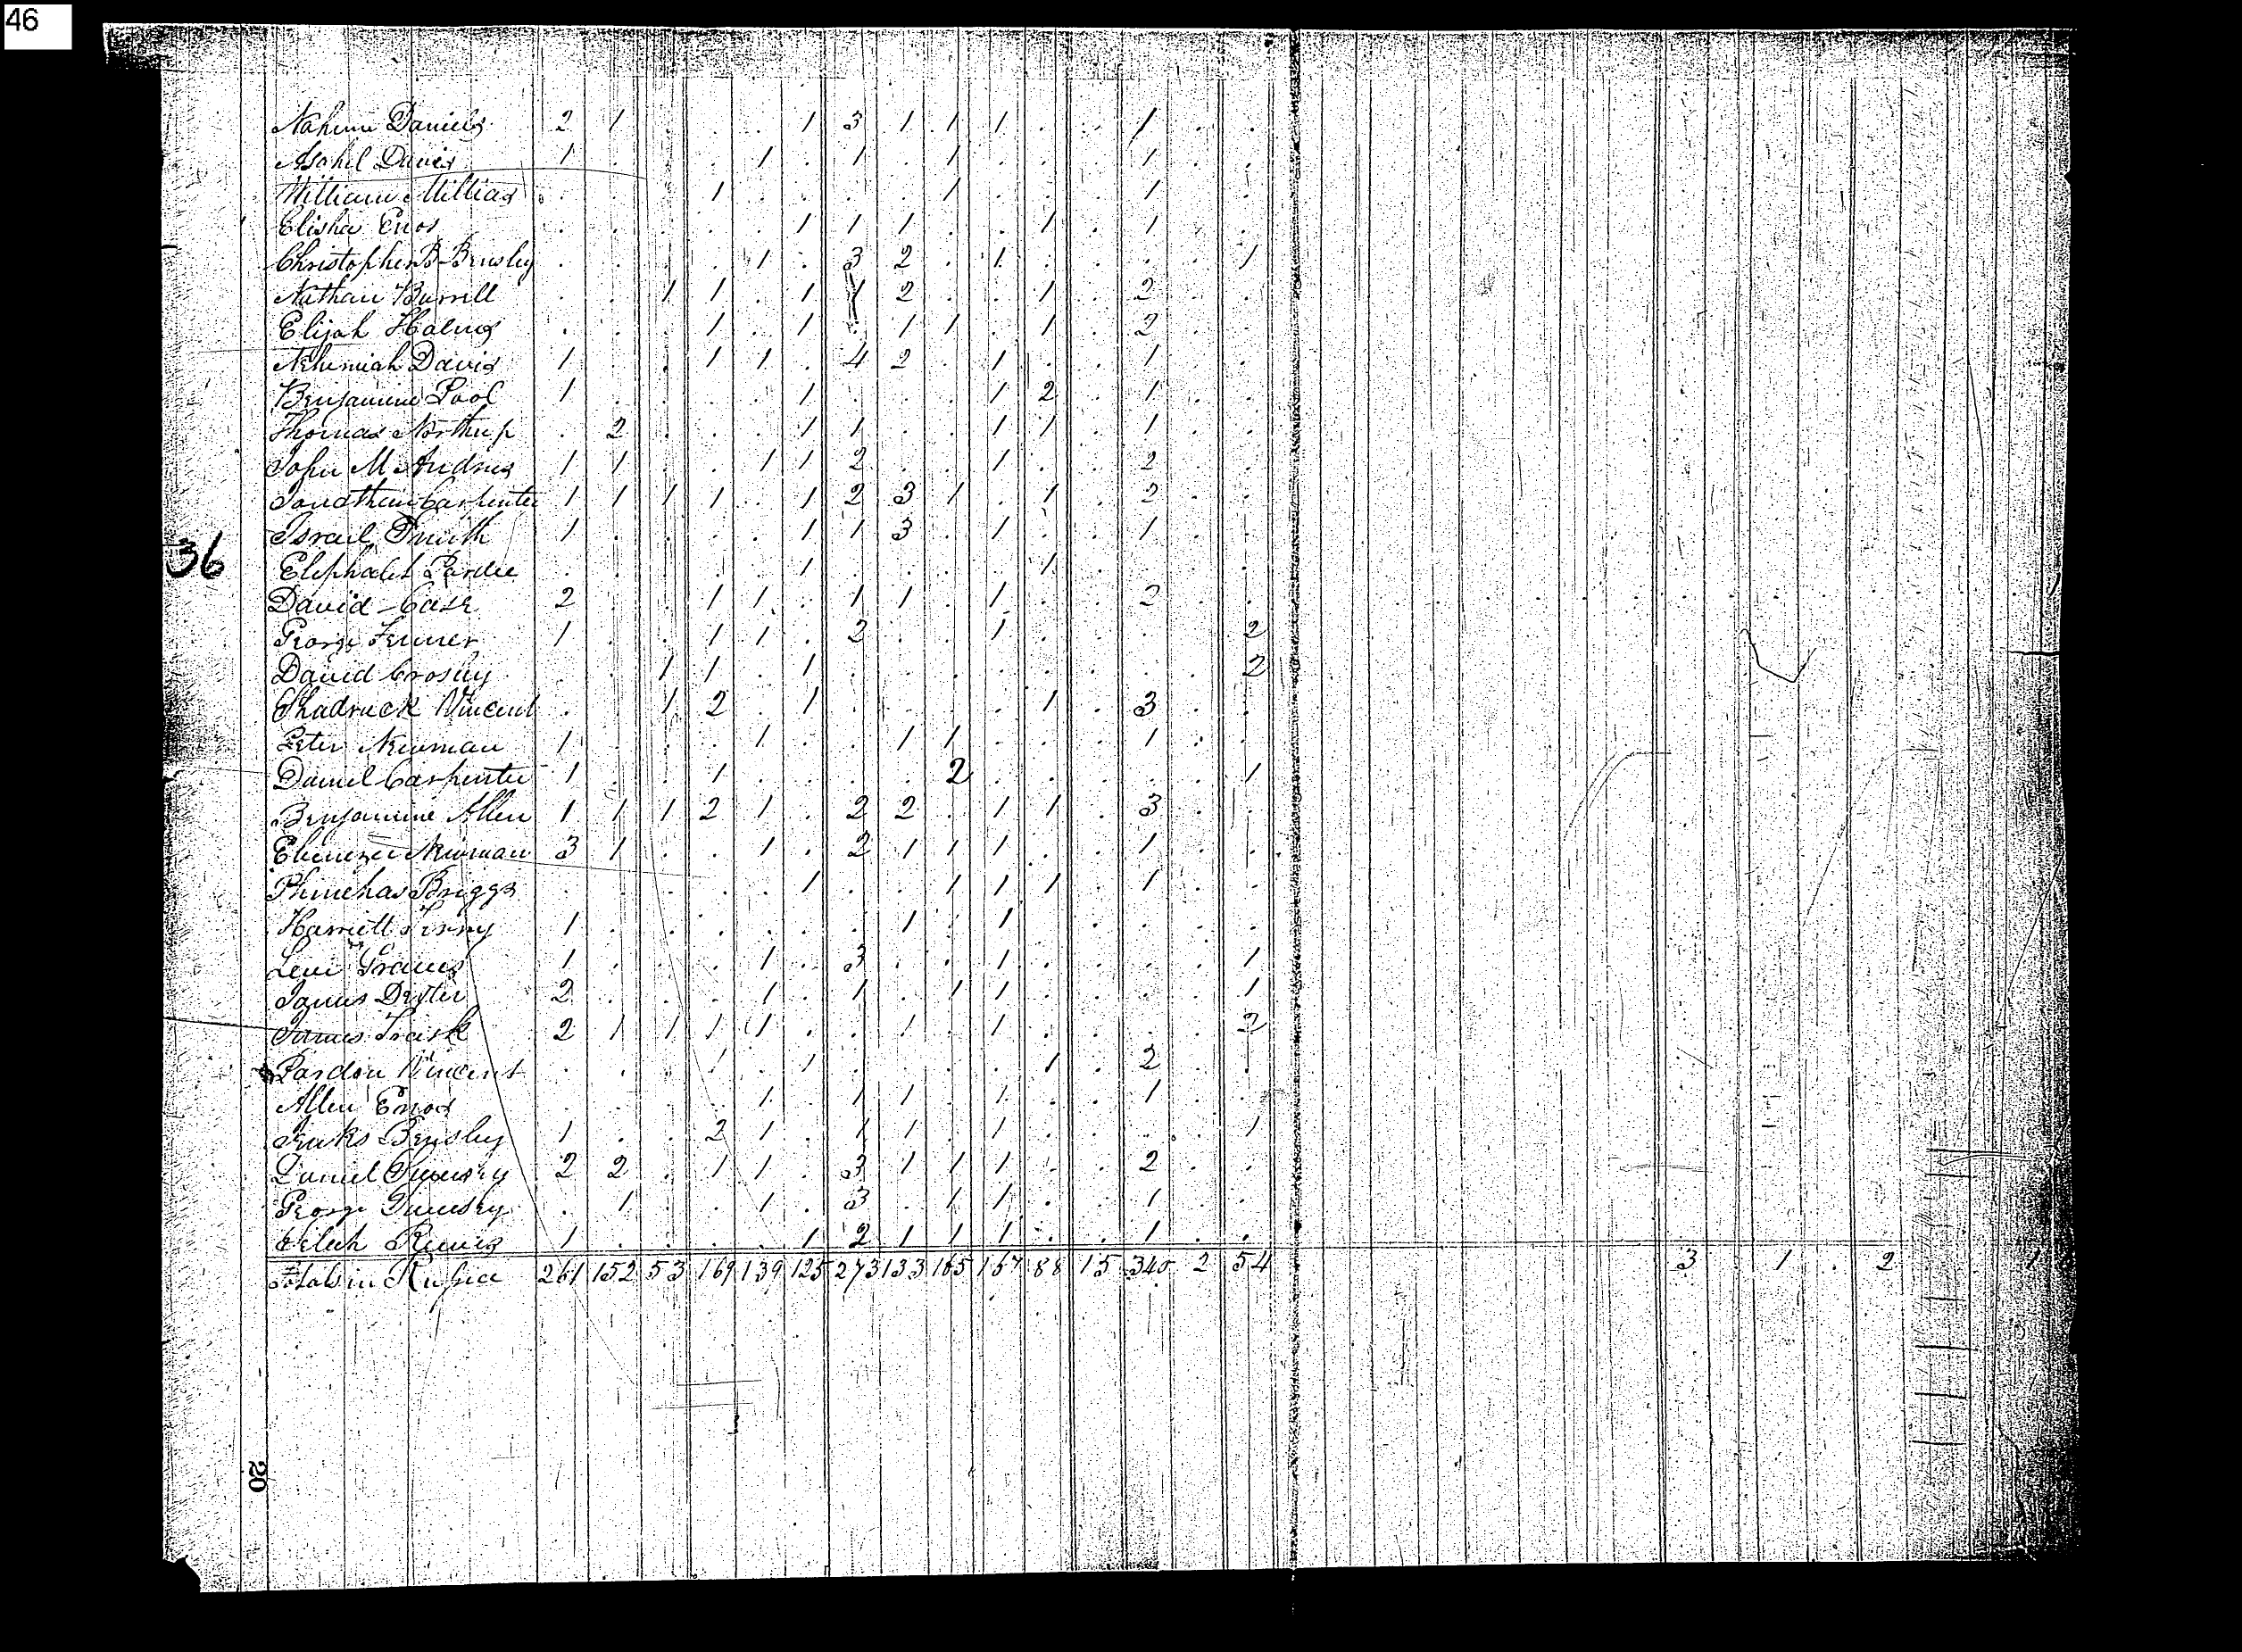 46
Nahum Daniels 2 1 . . . 1 3 1 1 1 . . 1 . .
Asahel Davis 1 . . . 1 . 1 . 1 . . . 1 . .
William . . . 1 . . . . 1 . . . 1 . .
Elisha Enos . . . . . 1 1 1 . . 1 . 1 . .
Christopher B . . . . 1 . 3 2 . 1 . . . . 1
Nathan Burrell . . 1 1 . 1 1 2 . . 1 . 2 . .
Elijah Holmes . . . 1 . 1 . 1 1 . 1 . 2 . .
Nehemiah Davis 1 . . 1 1 . 4 2 . 1 . . 1 . .
Benjamine Pool 1 . . . . 1 . . . 1 2 . 1 . .
Thomas Northup . 2 . . . 1 1 . . 1 1 . 1 . .
John M Andrus 1 1 . . 1 1 2 . . 1 . . 2 . .
Jonathan Carpenter 1 1 1 1 . 1 2 3 1 . 1 . 2 . .
Israel Smith 1 . . . . 1 1 3 . 1 . . 1 . .
36
Eliphalet Pardee . . . . . 1 . . . . 1 . . . .
David Case 2 . . 1 1 . 1 1 . 1 . . 2 . . 1
George Fenner 1 . . 1 1 . 2 . . 1 . . . . 2
David Crosby . . 1 1 . 1 . . . . . . . . 2
Shadrack Vincent . . 1 2 . 1 . . . . 1 . 3 . .
Peter Newman 1 . . . 1 . . 1 1 . . . 1 . .
Daniel Carpenter 1 . . 1 . . . . 2 . . . . . 1
Benjamine Allen 1 1 1 2 1 . 2 2 . 1 1 . 3 . .
Ebenezer Newman 3 1 . . 1 . 2 1 1 1 . . 1 . .
Phinehas Briggs . . . . . 1 . . 1 1 1 . 1 . .
Harriett 1 . . . . . . 1 . 1 . . . . .
Levi Graves 1 . . . 1 . 3 . . 1 . . . . 1
James Dexter 2 . . . 1 . 1 . 1 1 . . . . 1
James Trask 2 1 1 1 1 . . 1 . 1 . . . . 2
Pardon Vincent . . . 1 . 1 . . . . 1 . 2 . .
Allen Enos . . . . 1 . 1 1 . 1 . . 1 . .
Jenks 1 . . 2 1 . 1 1 . 1 . . . . 1
Daniel 2 2 . 1 1 . 3 1 1 1 . . 2 . .
George . 1 . . 1 . 3 . 1 1 . . 1 . .
1 . . . . 1 2 1 1 1 . . 1 . .
Totals in 261 152 53 169 139 125 273 133 165 157 88 15 340 2 54 3 1 . 2 1
20